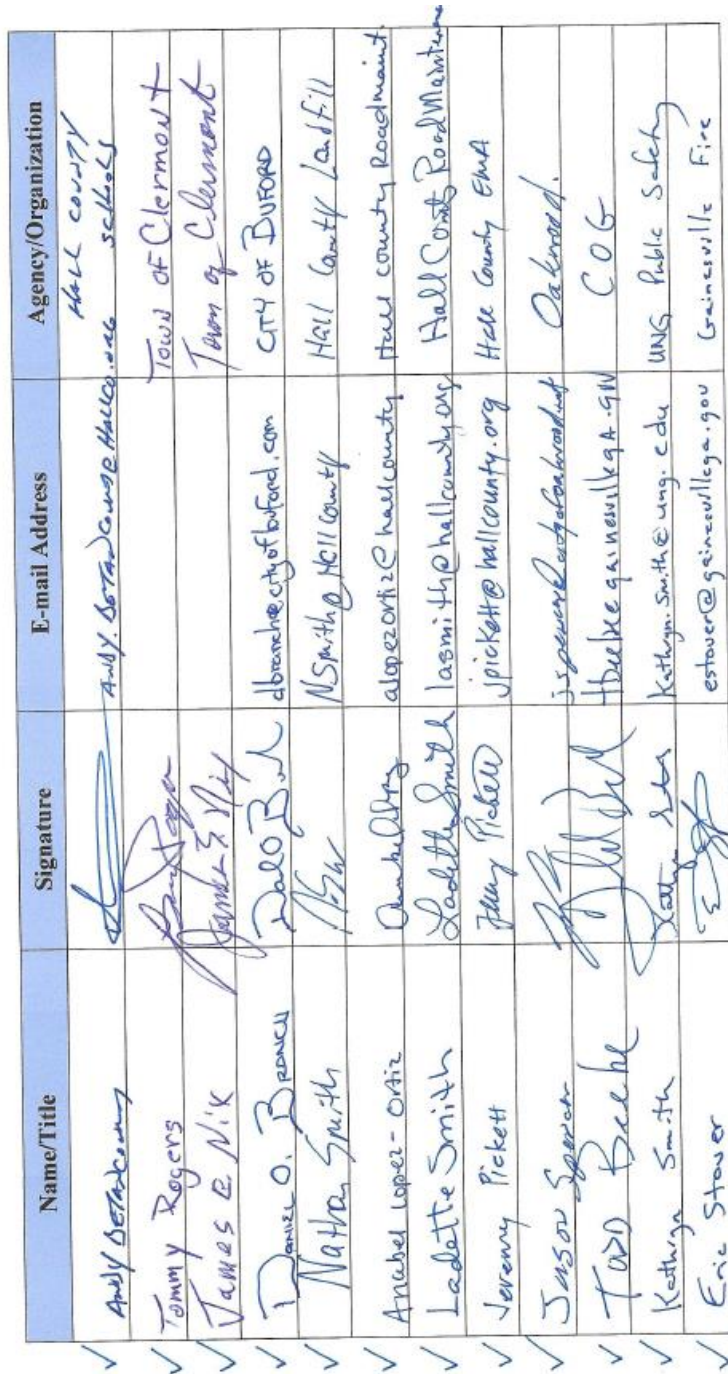 Name/Title Signature E-mail Address Agency/Organization
Andy Betancourt Andy.Betancourt@Hallco.org Hall County Schools
Tommy Rogers Town of Clermont
James E. Nix James E Nix Town of Clermont
Daniel O. Branch dbranch@cityofbuford.com City of Buford
Nathan Smith NSmith@Hallcounty Hall County Landfill
Anabel Lopez-Ortiz alopezortiz@hallcounty Hall County Roadmaint.
Ladette Smith Ladette Smith lasmith@hallcounty.org Hall County Road Maintenance
Jeremy Pickett Jeremy Pickett jpickett@hallcounty.org Hall County EMA
Jason Spencer Oakwood.
TODD Beebe COG
Kathryn Smith Kathryn.Smith@ung.edu UNG Public Safety
Eric Stover estover@gainesvillega.gov Gainesville Fire